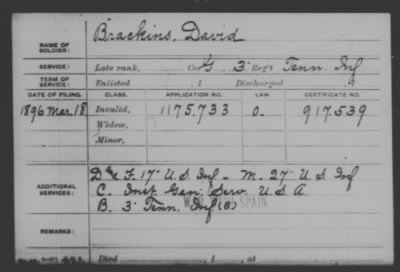 Brackins, David
NAME OF SOLDIER:
SERVICE: Late rank, Co. G, 3 Reg't Tenn Inf
TERM OF SERVICE: Enlisted , 1 Discharged , 1
DATE OF FILING. CLASS. APPLICATION NO. LAW. CERTIFICATE NO.
1896 Mar. 18 Invalid, 1175,733 917,539
Widow,
Minor,
D & F. 17" U S Inf - M. 27" U S Inf
ADDITIONAL SERVICES: C. Inst. Gen. Serv. U.S.A.
WAR WITH SPAIN
B. 3" Tenn. Inf (S)
REMARKS:
Died , 1 , at